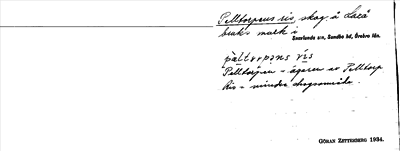 Pelltorpens ris, skog å Laxå
bruks mark i
Snavlunda sn, Sundbo hd, Örebro län.
pàltɔrpəns ris
Pelltorpen - ägaren av Pelltorp
Ris - mindre skogsområde.
GÖRAN ZETTERBERG 1934.